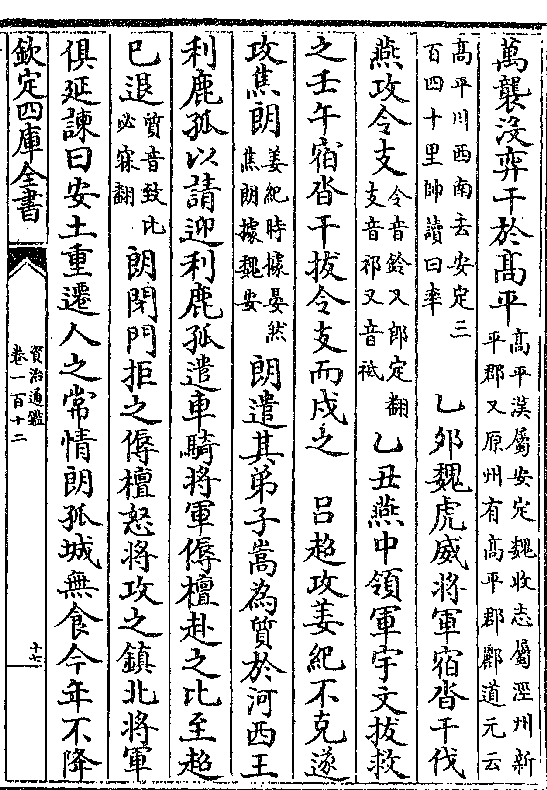 萬襲沒弈干於髙平髙平漢屬安定魏收志屬涇州新平郡又原州有髙平郡酈道元云
髙平川西南去安定三百四十里帥讀曰率　乙夘魏虎威將軍宿沓干伐
燕攻令支令音鈴又郎定翻支音祁又音祗乙丑燕中領軍宇文拔救
之壬午宿沓干拔令支而戍之　吕超攻姜紀不克遂
攻焦朗姜紀時據晏然焦朗據魏安朗遣其弟子嵩為質於河西王
利鹿孤以請迎利鹿孤遣車騎將軍傉檀赴之比至超
已退質音致比必寐翻朗閉門拒之傉檀怒將攻之鎮北將軍
俱延諫曰安土重遷人之常情朗孤城無食今年不降
欽定四庫全書
資治通鑑
卷一百十二
十七